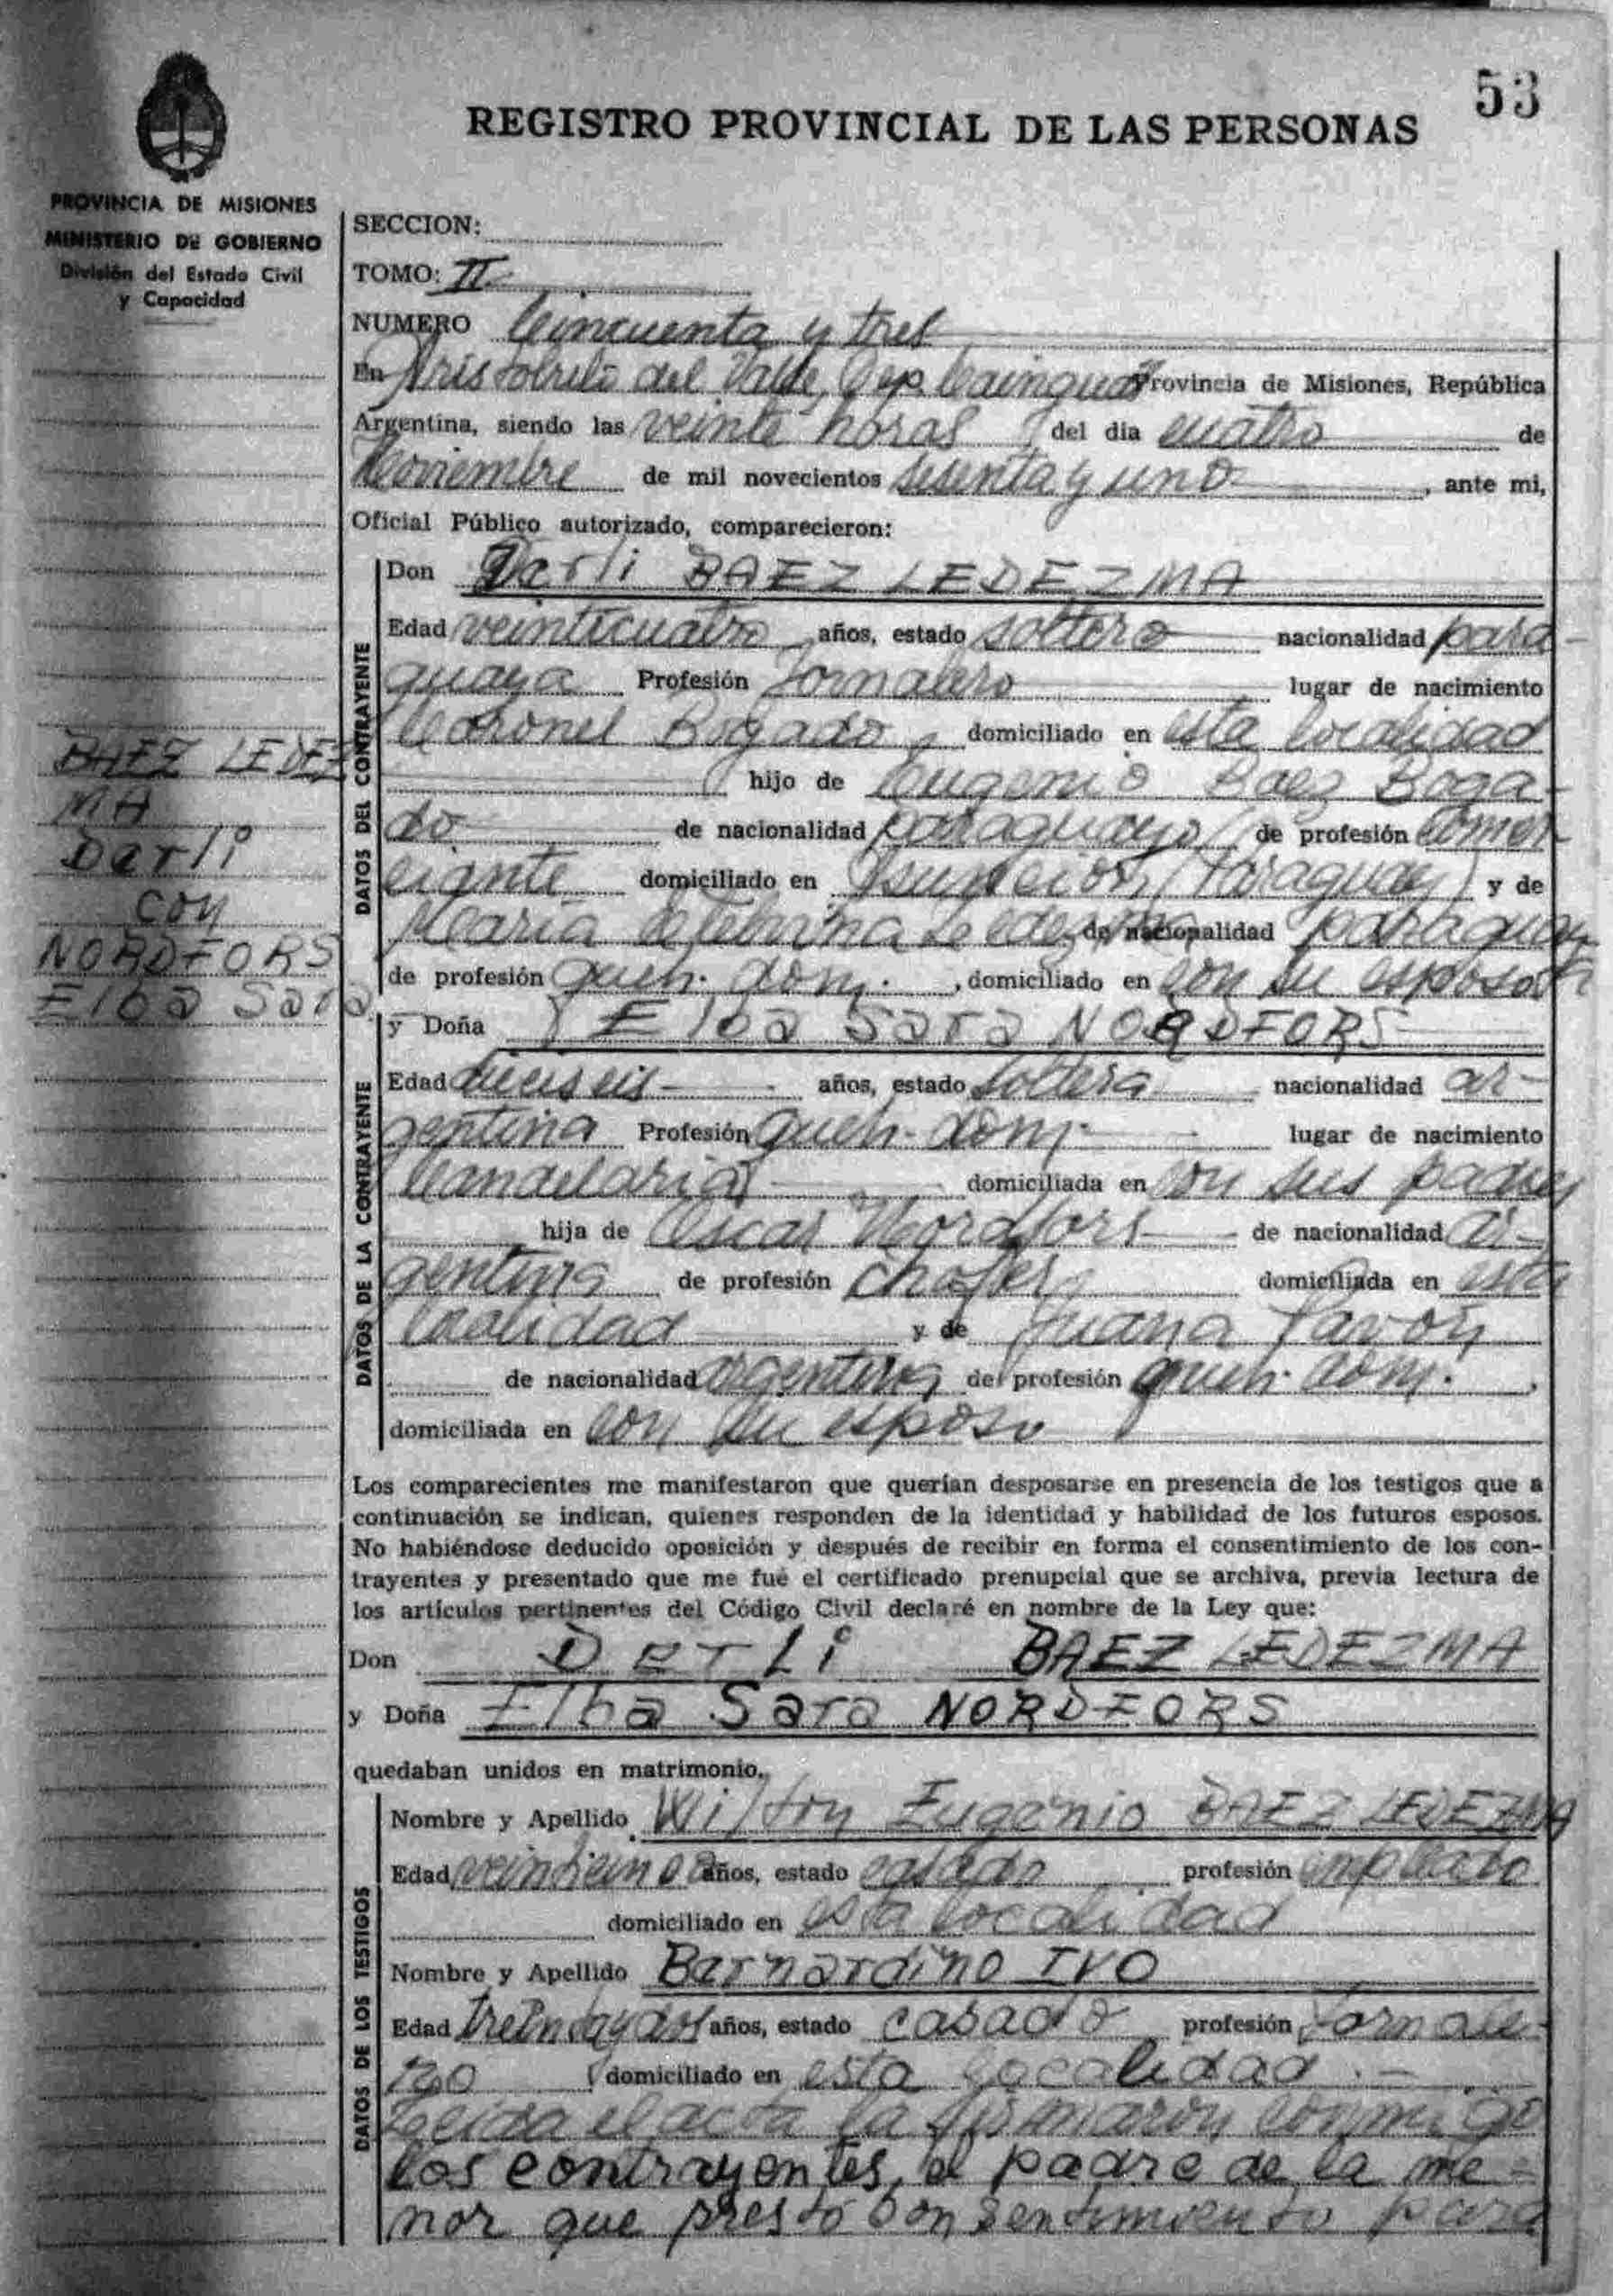 53
REGISTRO PROVINCIAL DE LAS PERSONAS
PROVINCIA DE MISIONES
MINISTERIO DE GOBIERNO
División del Estado Civil
y Capacidad
SECCION:
TOMO: II
NUMERO Cincuenta y tres
En Aristobulo del Valle, Dep. Cainguas Provincia de Misiones, República
Argentina, siendo las veinte horas del dia cuatro de
Noviembre de mil novecientos sesenta y uno, ante mi,
Oficial Público autorizado, comparecieron:
DATOS DEL CONTRAYENTE
Don Derli BAEZ LEDEZMA
Edad veinticuatro años, estado soltero nacionalidad para-
guaya Profesión Jornalero lugar de nacimiento
Coronel Bogado, domiciliado en esta localidad
hijo de Eugenio Baez Boga-
do de nacionalidad paraguayo, de profesión comer-
ciante domiciliado en Asunción (Paraguay) y de
Maria Ledezma de nacionalidad paraguaya
de profesión queh. dom., domiciliado en con su esposo
BAEZ LEDEZ
MA
Derli
con
NORDFORS
Elba Sara
DATOS DE LA CONTRAYENTE
y Doña Elba Sara NORDFORS
Edad dieciseis años, estado soltera nacionalidad ar-
gentina Profesión queh. dom. lugar de nacimiento
Candelaria domiciliada en con sus padres
hija de Oscar Nordfors de nacionalidad ar-
gentina de profesión chofer domiciliada en esta
localidad y de Juana Pavon
de nacionalidad argentina de profesión queh. dom.,
domiciliada en con su esposo
Los comparecientes me manifestaron que querían desposarse en presencia de los testigos que a
continuación se indican, quienes responden de la identidad y habilidad de los futuros esposos.
No habiéndose deducido oposición y después de recibir en forma el consentimiento de los con-
trayentes y presentado que me fué el certificado prenupcial que se archiva, previa lectura de
los artículos pertinentes del Código Civil declaré en nombre de la Ley que:
Don Derli BAEZ LEDEZMA
y Doña Elba Sara NORDFORS
quedaban unidos en matrimonio.
DATOS DE LOS TESTIGOS
Nombre y Apellido Wilson Eugenio BAEZ LEDEZMA
Edad años, estado casado profesión empleado
domiciliado en esta localidad
Nombre y Apellido Bernardino IVO
Edad treinta y dos años, estado casado profesión Jornale-
ro domiciliado en esta localidad.-
Leida el acta la firmaron conmigo
los contrayentes, el padre de la me-
nor que prestó consentimiento para